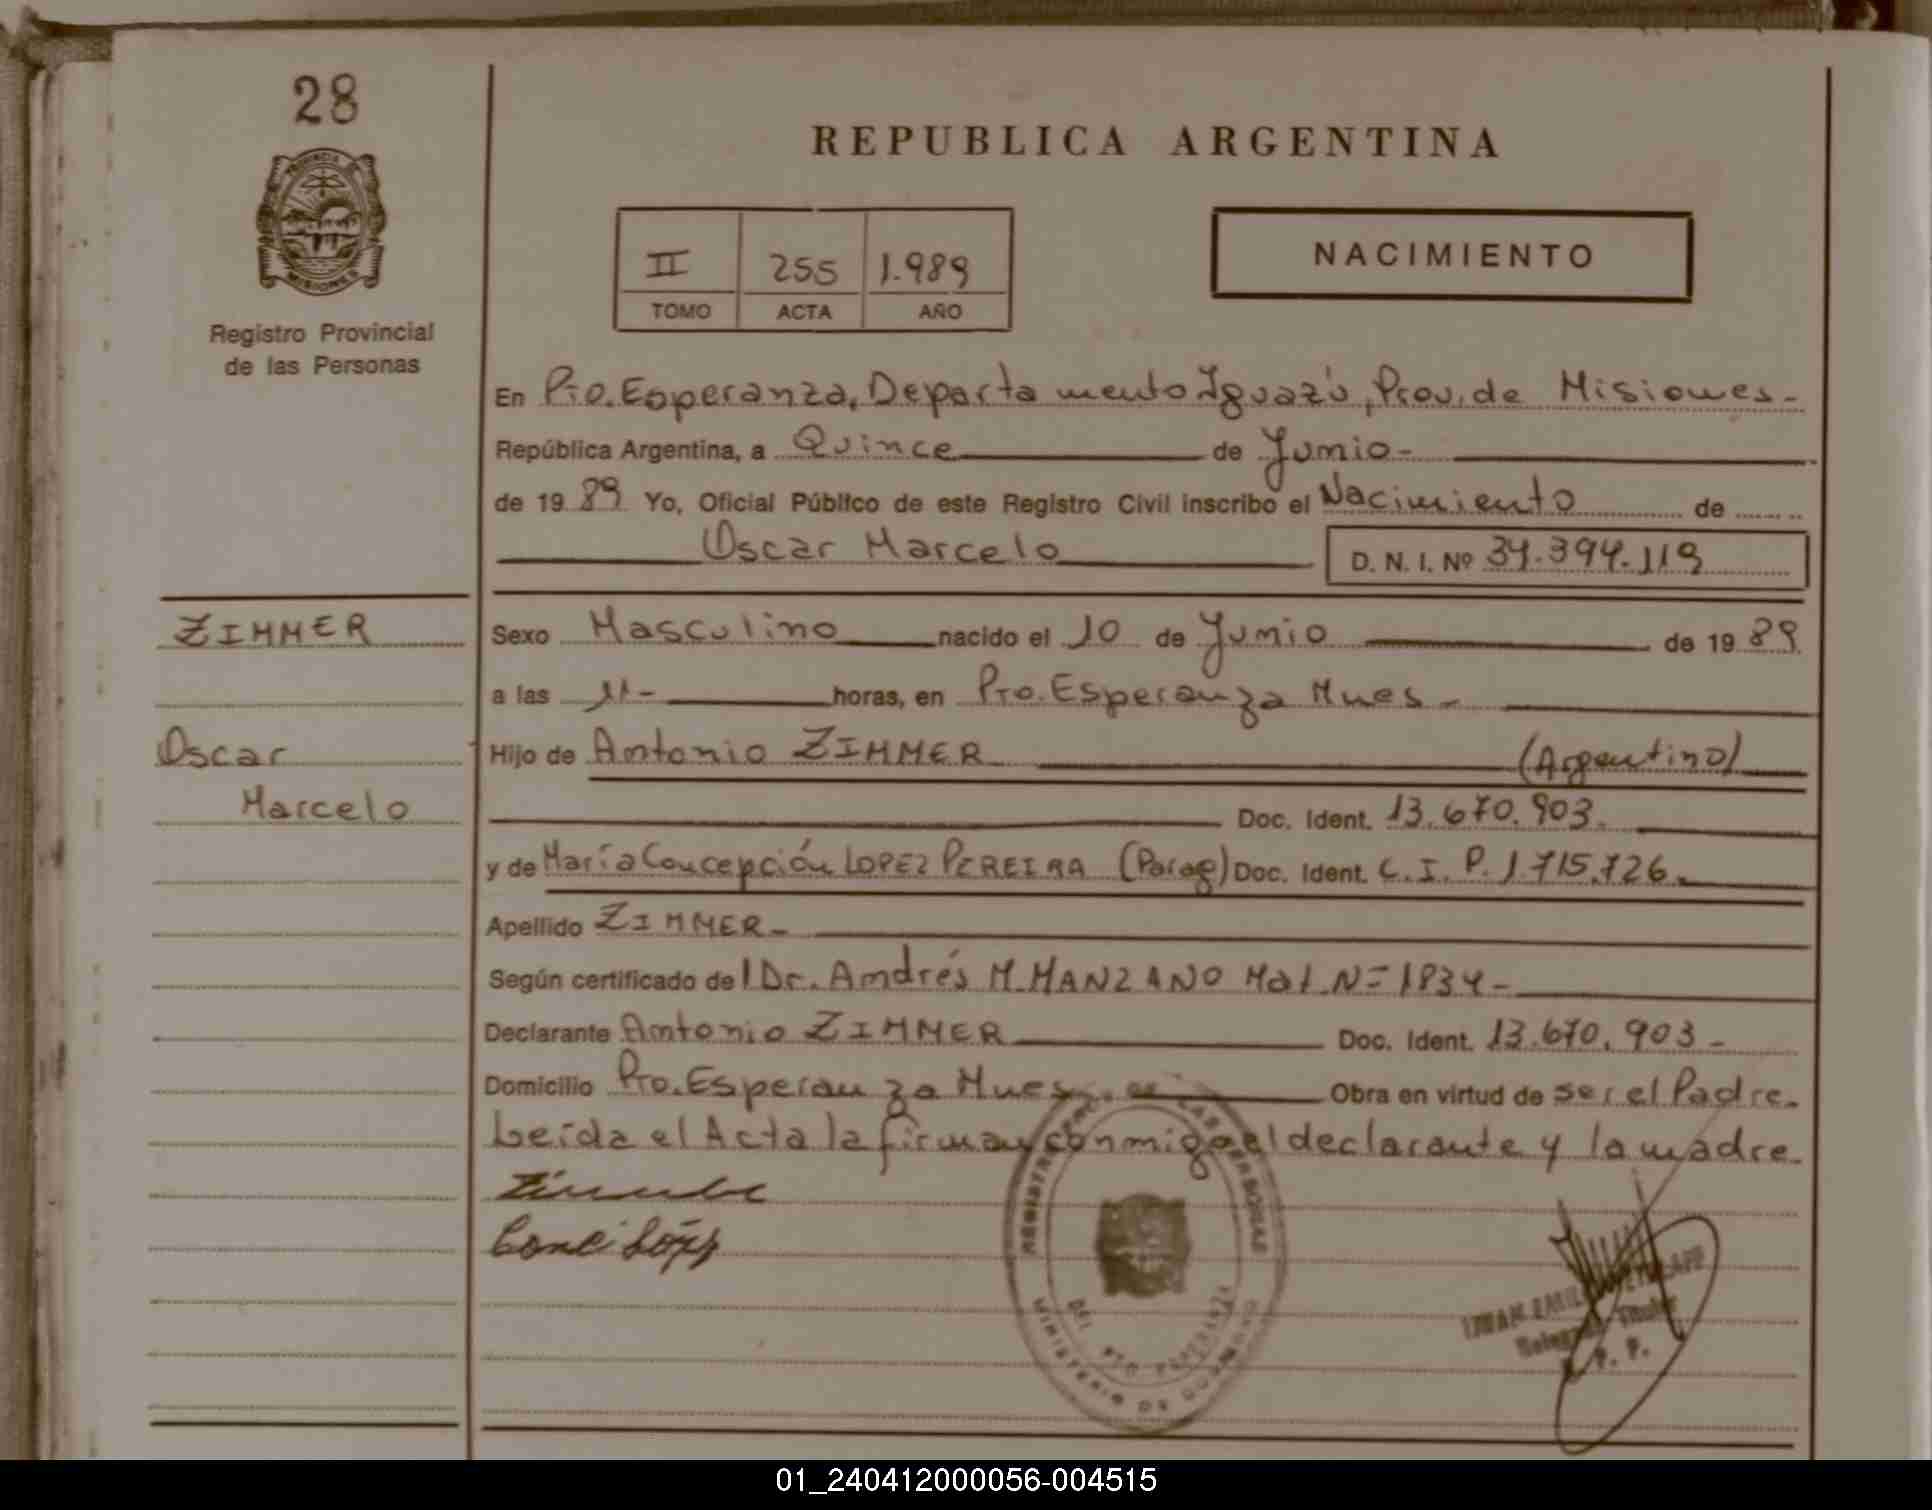 28
PROVINCIA DE
MISIONES
Registro Provincial
de las Personas
REPUBLICA ARGENTINA
II 255 1.989
TOMO ACTA AÑO
NACIMIENTO
En Pto. Esperanza, Departamento Iguazú, Prov. de Misiones-
República Argentina, a Quince de Junio-
de 1989 Yo, Oficial Público de este Registro Civil inscribo el Nacimiento de
Oscar Marcelo D. N. I. Nº 34.394.119
ZIMMER
Sexo Masculino nacido el 10 de Junio de 1989
a las 11- horas, en Pto. Esperanza Mnes-
Oscar
Hijo de Antonio ZIMMER (Argentino)
Marcelo
Doc. Ident. 13.670.903.
y de María Concepción LOPEZ PEREIRA (Parag) Doc. Ident. C. I. P. 1.715.726.
Apellido ZIMMER-
Según certificado del Dr. Andrés M. MANZANO Mat. N= 1834-
Declarante Antonio ZIMMER Doc. Ident. 13.670.903-
Domicilio Pto. Esperanza Mnes. Obra en virtud de ser el Padre.
Leída el Acta la firman conmigo el declarante y la madre.
REGISTRO PROV. DE LAS PERSONAS
DEL PTO ESPERANZA
MINISTERIO DE GOBIERNO
Titular
01_240412000056-004515